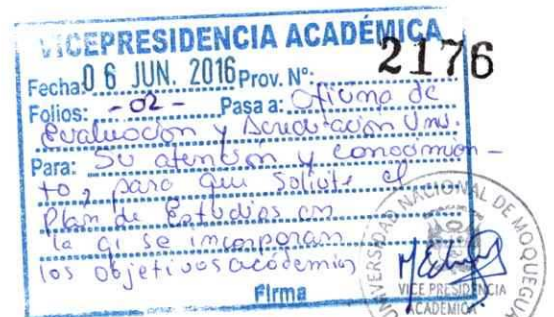 VICEPRESIDENCIA ACADÉMICA
2176
Fecha: 06 JUN. 2016 Prov. N°:
Folios: - 02 - Pasa a: Oficina de
Evaluación y Acreditación Univ.
Para: Su atención y conocimien-
to, para que solicite el
Plan de Estudios en
la q' se incorporan
los objetivos académicos
Firma
UNIVERSIDAD NACIONAL DE MOQUEGUA
VICE PRESIDENCIA
ACADÉMICA